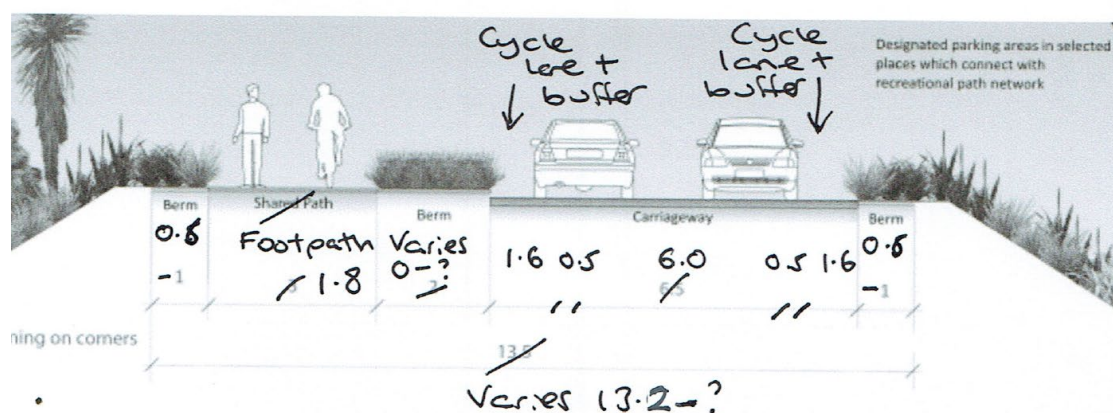 Cycle
lane +
buffer
Cycle
lane +
buffer
Designated parking areas in selected
places which connect with
recreational path network
Berm
Shared Path
Berm
Carriageway
Berm
Footpath
Varies
0-?
1.6 0.5
6.0
0.5 1.6
-1
1.8
6.5
-1
ning on corners
13.5
Varies 13.2-?